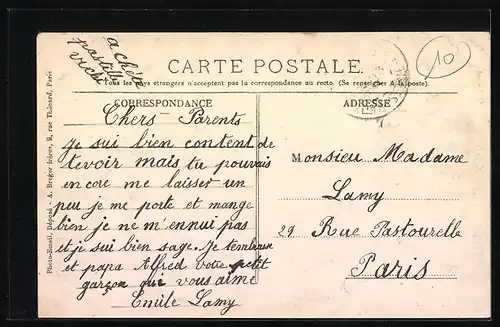 achète
pastille
vichi
10
CARTE POSTALE.
Tous les pays étrangers n'acceptent pas la correspondance au recto. (Se renseigner à la poste).
CORRESPONDANCE
ADRESSE
Chers Parents
Je sui bien content de
te voir mais tu pouvais
encore me laisser un
peu je me porte et mange
bien je ne m'ennui pas
et je sui bien sage. Je
et papa Alfred votre petit
garçon qui vous aime
Emile Lamy
Monsieur Madame
Lamy
29 Rue Pastourelle
Paris
Photo-Émail. Déposé - A. Breger frères, 9, rue Thénard, Paris